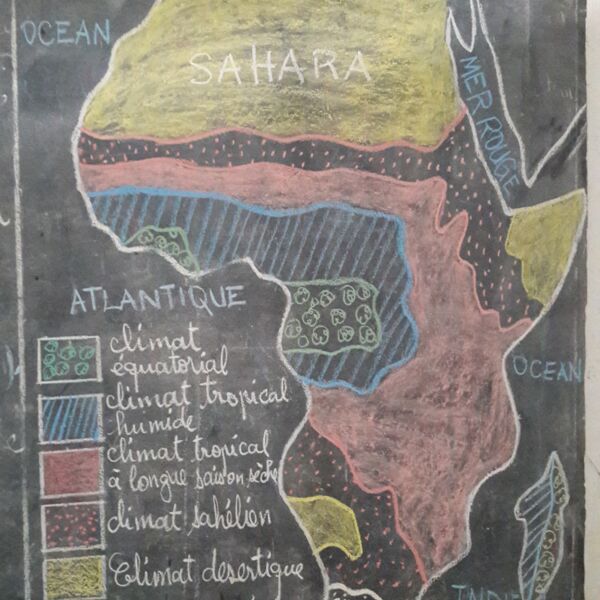 OCEAN
SAHARA
MER ROUGE
ATLANTIQUE
OCEAN
climat
équatorial
climat tropical
humide
climat tropical
à longue saison sèche
climat sahélien
Climat desertique